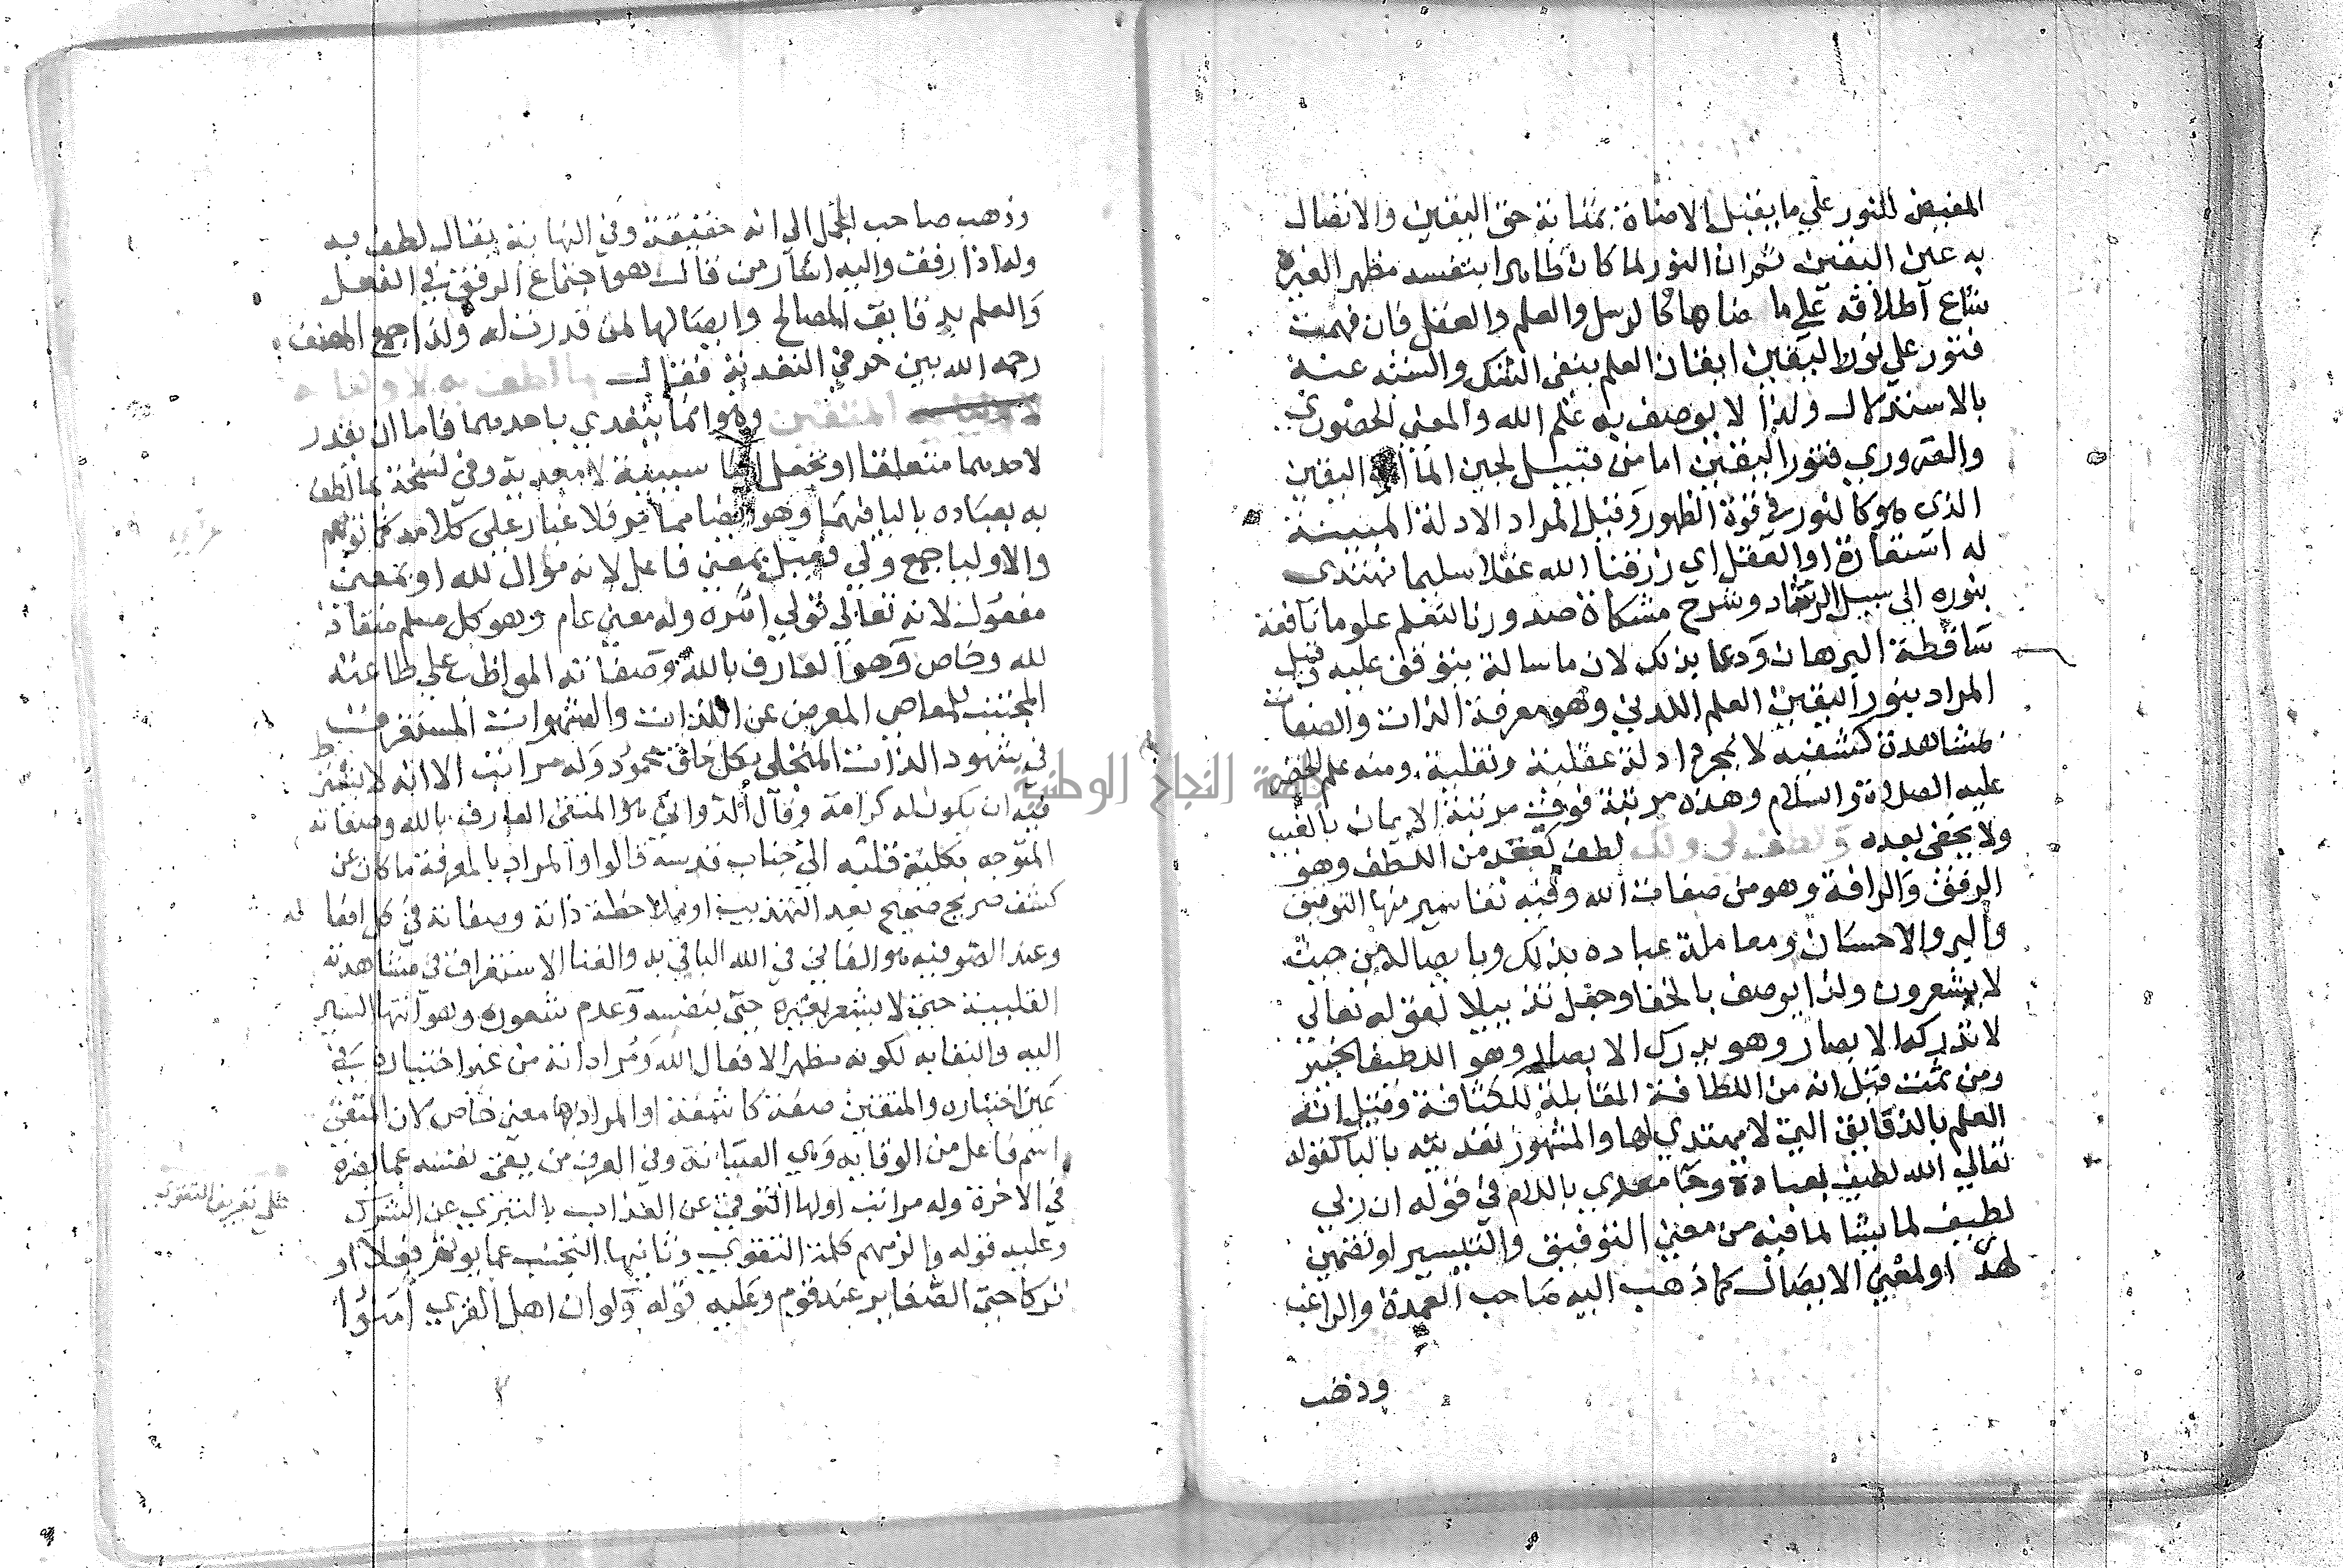 المفيض للنور علي ما يقبل الاضاة بمثابة حق اليقين والاتصال
به عين اليقين ثم ان النور لما كان ظاهرا بنفسه مظهر الغيره
شاع اطلاقه علي ما ضاهاه كالرسل والعلم والعقل فان فهمت
فنور علي نور اليقين ايقان العلم بنفي الشك والشبه عنه
بالاستدلال ولذا لا يوصف به علم الله والمعني الحضوري
والضروري فنور اليقين اما من قبيل لجين الما اي اليقين
الذي هو كالنور في قوة الظهور وقيل المراد الادلة المبينة
له استعارة او العقل اي رزقنا الله عقلا سليما نهتدي
بنوره الي سبيل الرشاد وشرح مشكاة صدورنا لتعلم علوما نافعة
ساطعة البرهان ودعا بذلك لان ما ساله يتوقف عليه وقيل
المراد بنور اليقين العلم اللدني وهو معرفة الذات والصفات
مشاهدة كشفيه لا بمجرد ادلة عقلية ونقلية ومنه علم الخضر
عليه الصلاة والسلام وهذه مرتبة فوق مرتبة الايمان بالغيب
ولا يخفي بعده ولطف لي ولك لطف كقعد من اللطف وهو
الرفق والرافة وهو من صفات الله وفيه تفاسير منها التوفيق
والبر والاحسان ومعاملة عباده بذلك وبايصاله من حيث
لا يشعرون ولذا يوصف بالخفا وجعل تذييلا لقوله تعالي
لا تدركه الابصار وهو يدرك الابصار وهو اللطيف الخبير
ومن ثمت قيل انه من اللطافة المقابلة للكثافة وقيل انه
العلم بالدقايق التي لا يهتدي لها والمشهور تعديته بالبا كقوله
تعالي الله لطيف بعباده وجا معدي باللام في قوله ان ربي
لطيف لما يشا لما فيه من معني التوفيق والتيسير او تضمين
لهد او لمعني الايصال كما ذهب اليه صاحب العمدة والراغب
وذهب
وذهب صاحب المجمل الي انه حقيقة وفي النهاية يقال لطف به
وله اذا رفق واليه اشار من قال هو اجتماع الرفق في الفعل
والعلم بدقايق المصالح وايصالها لمن قدرت له ولذا جمع المصنف
رحمه الله بين حرفي التعدية فقال بما لطف به لاوليا
المتقين وهو انما يتعدي باحدهما فاما ان يقدر
لاحدهما متعلقا او تجعل البا سببية لا معدية وفي نسخة بما لطف
به بعباده بالبا فيهما وهو ايضا مما مر فلا غبار علي كلامه كما توهم
والاوليا جمع ولي فعيل بمعني فاعل لانه موال لله او بمعني
مفعول لانه تعالي تولي امره وله معني عام وهو كل مسلم منقاد
لله وخاص وهو العارف بالله وصفاته المواظب علي طاعته
المجتنب للمعاصي المعرض عن اللذات والشهوات المستغرق
في شهود الذات المتخلي بكل خلق محمود وله مراتب الا انه لا يشترط
فيه ان يكون له كرامة وقال الدواني هو المتقي العارف بالله وصفاته
المتوجه بكلية قلبه الي جناب قدسه قالوا والمراد بالمعرفة ما كان عن
كشف صريح صحيح بعد التهذيب او بملاحظة ذاته وصفاته في كل افعاله
وعند الصوفيه هو الفاني في الله الباقي به والفنا الاستغراق في مشاهدته
القلبية حيث لا يشعر بغيره حتي بنفسه وعدم شعوره وهو انتها السير
اليه والبقا به لكونه مظهرا لافعال الله ومراداته من غير اختياره بقي
عين اختياره والمتقين صفة كاشفة او المراد بها معني خاص لان المتقي
اسم فاعل من الوقايه وهي الصيانة وفي العرف من يقي نفسه عما يضره
في الاخرة وله مراتب اولها التوقي عن العذاب بالتبري عن الشرك
وعليه قوله والزمهم كلمة التقوي وثانيها التجنب عما يوثم فعلا او
تركا حتي الصغاير عند قوم وعليه قوله ولو ان اهل القري امنوا
علي تعريف التقوي
جامعة النجاح الوطنية